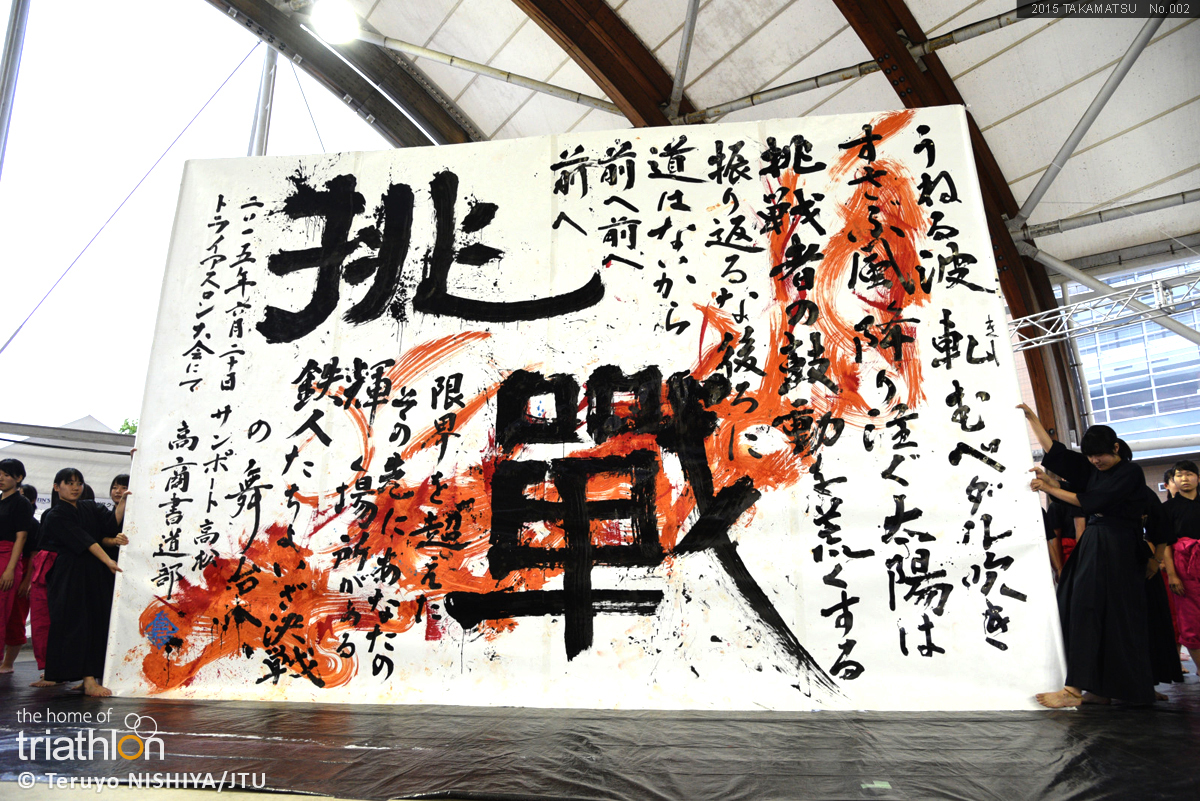 2015 TAKAMATSU No.002
うねる波 軋むペダル吹き
きし
すさぶ風降り注ぐ太陽は
挑戦者の鼓動を荒くする
振り返るな後ろに
道はないから
前へ前へ
前へ
挑
戰
限界を超えた
その先にあなたの
輝く場所がある
鉄人たちよいざ決戦
の舞台へ
二〇一五年六月二十日 サンポート高松
トライアスロン大会にて 高商書道部
the home of
triathlon
© Teruyo NISHIYA/JTU